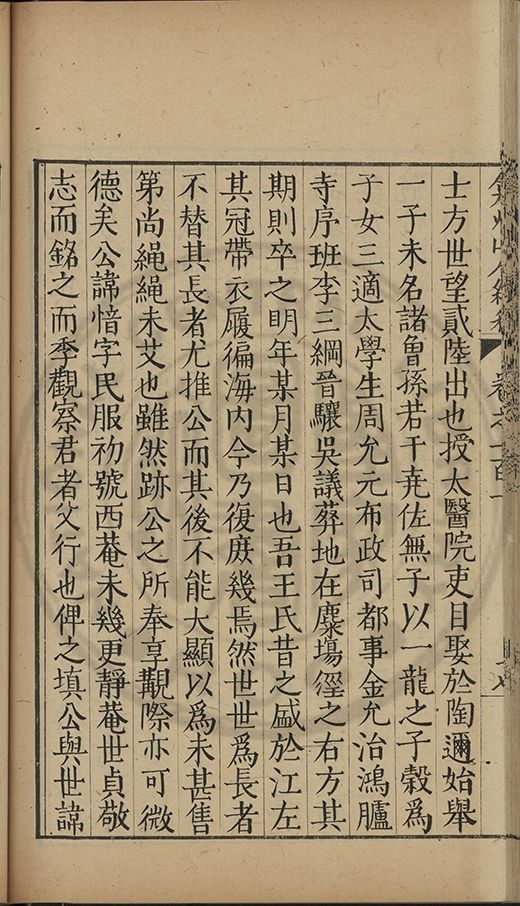 士方世望貳陸出也授太醫院吏目娶於陶邇始舉
一子未名諸魯孫若干堯佐無子以一龍之子穀爲
子女三適太學生周允元布政司都事金允治鴻臚
寺序班李三綱晉驤吳議葬地在麋場徑之右方其
期則卒之明年某月某日也吾王氏昔之盛於江左
其冠帶衣履徧海内今乃復庶幾焉然世世爲長者
不替其長者尤推公而其後不能大顯以爲未甚售
第尚繩繩未艾也雖然跡公之所奉享覯際亦可微
德矣公諱愔字民服初號西菴未幾更靜菴世貞敬
志而銘之而季觀察君者父行也俾之填公與世諱